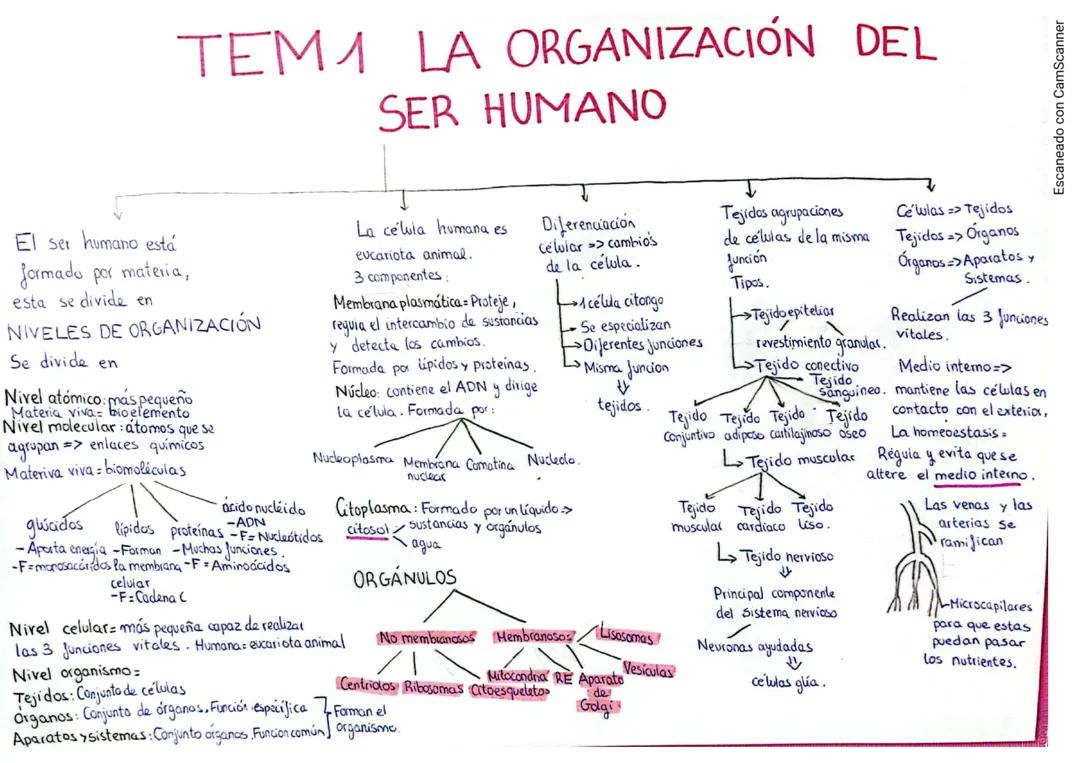 TEM1 LA ORGANIZACIÓN DEL
SER HUMANO
Escaneado con CamScanner
El ser humano está
formado por materia,
esta se divide en
NIVELES DE ORGANIZACIÓN
Se divide en
Nivel atómico: más pequeño
Materia viva= bioelemento
Nivel molecular: átomos que se
agrupan => enlaces químicos
Materiva viva= biomoléculas
glúcidos
- Aporta energía
-F=monosacáridos
lípidos
-Forman
la membrana
celular
-F=Cadena C
proteínas
-Muchas funciones.
-F=Aminoácidos
ácido nucléido
-ADN
-F=Nucleótidos
Nivel celular= más pequeña capaz de realizar
las 3 funciones vitales. Humana= eucariota animal
Nivel organismo=
Tejidos: Conjunto de células
Órganos: Conjunto de órganos. Función específica
Aparatos y sistemas: Conjunto órganos. Función común
Forman el
organismo.
La célula humana es
eucariota animal.
3 componentes:
Membrana plasmática= Proteje,
regula el intercambio de sustancias
y detecta los cambios.
Formada por lípidos y proteínas.
Núcleo: contiene el ADN y dirige
la célula. Formada por:
Nucleoplasma
Membrana
nuclear
Comatina
Nucleolo.
Citoplasma: Formado por un líquido =>
citosol
sustancias y orgánulos
agua
ORGÁNULOS
No membranosos
Centriolos
Ribosomas
Citoesqueleto
Membranosos
Mitocondria
RE
Aparato
de
Golgi
Vesículas
Lisosomas
Diferenciación
célular => cambios
de la célula.
1 célula citongo
Se especializan
Diferentes funciones
Misma funcion
tejidos.
Tejidos agrupaciones
de células de la misma
función
Tipos.
Tejido epiteliar
revestimiento
granular.
Tejido conectivo
Tejido
sanguineo.
Tejido
conjuntivo
Tejido
adiposo
Tejido
cartilajinoso
Tejido
óseo
Tejido muscular
Tejido
muscular
Tejido
cardiaco
Tejido
liso.
Tejido nervioso
Principal componente
del sistema nervioso
Neuronas ayudadas
células glía.
Células => Tejidos
Tejidos => Órganos
Órganos => Aparatos y
Sistemas.
Realizan las 3 funciones
vitales.
Medio interno=>
mantiene las células en
contacto con el exterior,
La homeostasis=
Régula y evita que se
altere el medio interno.
Las venas y las
arterias se
ramifican
Microcapilares
para que estas
puedan pasar
los nutrientes.